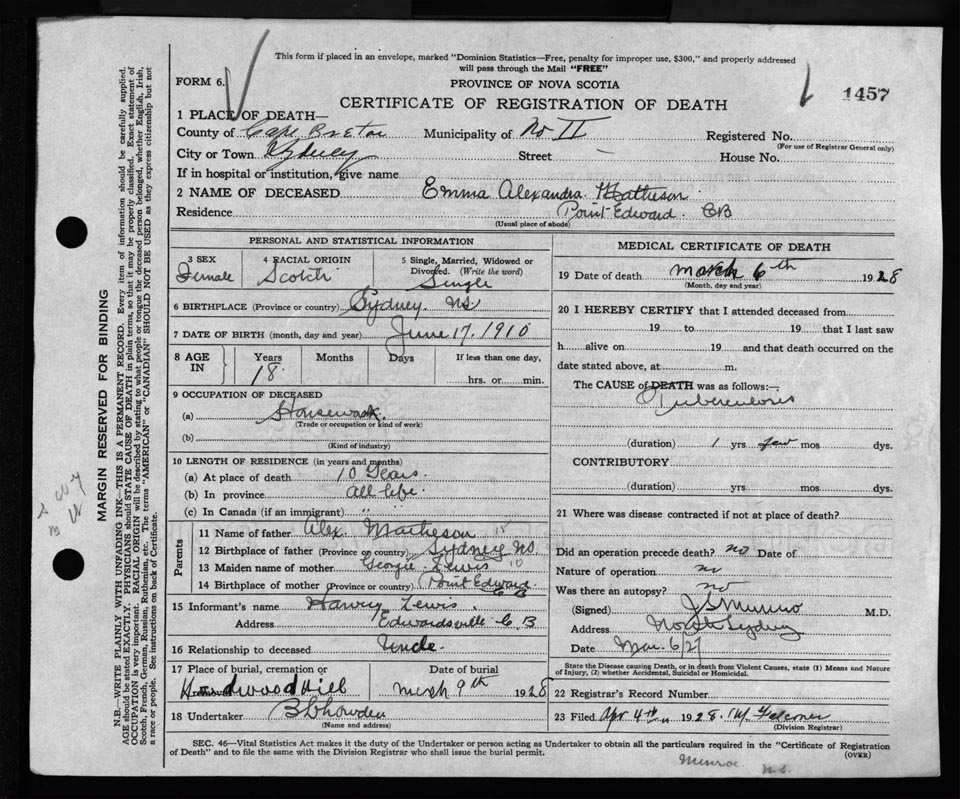 This form if placed in an envelope, marked "Dominion Statistics—Free, penalty for improper use, $300," and properly addressed
will pass through the Mail "FREE"
FORM 6.
PROVINCE OF NOVA SCOTIA
1457
CERTIFICATE OF REGISTRATION OF DEATH
1 PLACE OF DEATH—
County of Cape Breton Municipality of No II Registered No.
(For use of Registrar General only)
City or Town Sydney Street — House No.
If in hospital or institution, give name
2 NAME OF DECEASED Emma Alexandra Matheson
Residence Point Edward CB
(Usual place of abode)
PERSONAL AND STATISTICAL INFORMATION
3 SEX 4 RACIAL ORIGIN 5 Single, Married, Widowed or
Divorced. (Write the word)
Female Scotch Single
6 BIRTHPLACE (Province or country) Sydney. NS
7 DATE OF BIRTH (month, day and year) June 17. 1910
8 AGE IN Years Months Days If less than one day,
18 hrs. or min.
9 OCCUPATION OF DECEASED
(a) Housework
(Trade or occupation or kind of work)
(b)
(Kind of industry)
10 LENGTH OF RESIDENCE (in years and months)
(a) At place of death 10 Years.
(b) In province all life.
(c) In Canada (if an immigrant) "
Parents
11 Name of father Alex. Matheson
12 Birthplace of father (Province or country) Sydney NS
13 Maiden name of mother Georgie Lewis
14 Birthplace of mother (Province or country) Point Edward CB
15 Informant's name Harvey Lewis
Address Edwardsville C.B
16 Relationship to deceased Uncle.
17 Place of burial, cremation or removal Date of burial
Hardwood Hill March 9th 1928
18 Undertaker
(Name and address)
MEDICAL CERTIFICATE OF DEATH
19 Date of death March 6th 1928
(Month, day and year)
20 I HEREBY CERTIFY that I attended deceased from
19 to 19 that I last saw
h alive on 19 and that death occurred on the
date stated above, at m.
The CAUSE of DEATH was as follows:—
Tuberculosis
(duration) 1 yrs few mos dys.
CONTRIBUTORY
(duration) yrs mos dys.
21 Where was disease contracted if not at place of death?
Did an operation precede death? no Date of
Nature of operation no
Was there an autopsy? no
(Signed) J S Munro M.D.
Address North Sydney
Date Mar. 6/27
State the Disease causing Death, or in death from Violent Causes, state (1) Means and Nature
of Injury, (2) whether Accidental, Suicidal or Homicidal.
22 Registrar's Record Number
23 Filed Apr 4th 1928. Falconer
(Division Registrar)
SEC. 46—Vital Statistics Act makes it the duty of the Undertaker or person acting as Undertaker to obtain all the particulars required in the "Certificate of Registration
of Death" and to file the same with the Division Registrar who shall issue the burial permit. (OVER)
Munroe N.S.
MARGIN RESERVED FOR BINDING
N.B.—WRITE PLAINLY WITH UNFADING INK—THIS IS A PERMANENT RECORD. Every item of information should be carefully supplied.
AGE should be stated EXACTLY. PHYSICIANS should STATE CAUSE OF DEATH in plain terms, so that it may be properly classified. Exact statement of
OCCUPATION is very important. RACIAL ORIGIN will be described by stating to what people or tongue the deceased person belonged, whether English, Irish,
Scotch, French, German, Russian, Ruthenian, etc. The terms "AMERICAN" or "CANADIAN" SHOULD NOT BE USED as they express citizenship but not
a race or people. See instructions on back of Certificate.